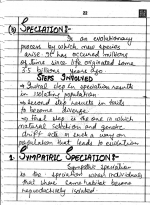 22
SPECIATION:-
Is an evolutionary
process by which new species
arise. It has occured millions
of time since life originated some
3.5 billions years ago
STEPS INVOLVED
→ Initial step in speciation results
in isolating population
→ Second step results in traits
to become diverge
→ final step is the one in which
natural selection and genetic
drift acts in such a way on
population that leads to evolution
1. SYMPATRIC SPECIATION:-
Sympatric speciation
is the speciation when individuals
that share same habitat become
reproductively isolated